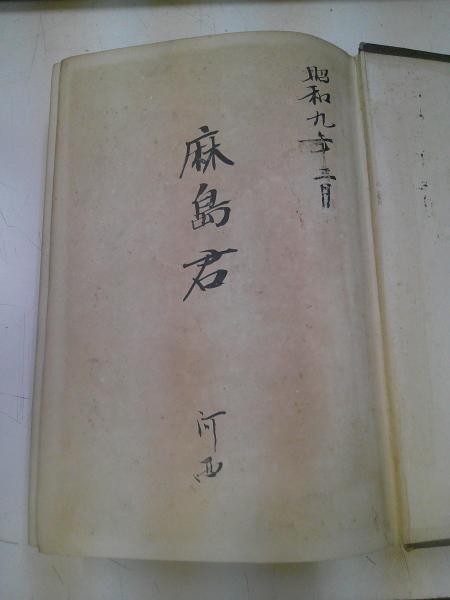 昭和九年三月
麻島君
河西